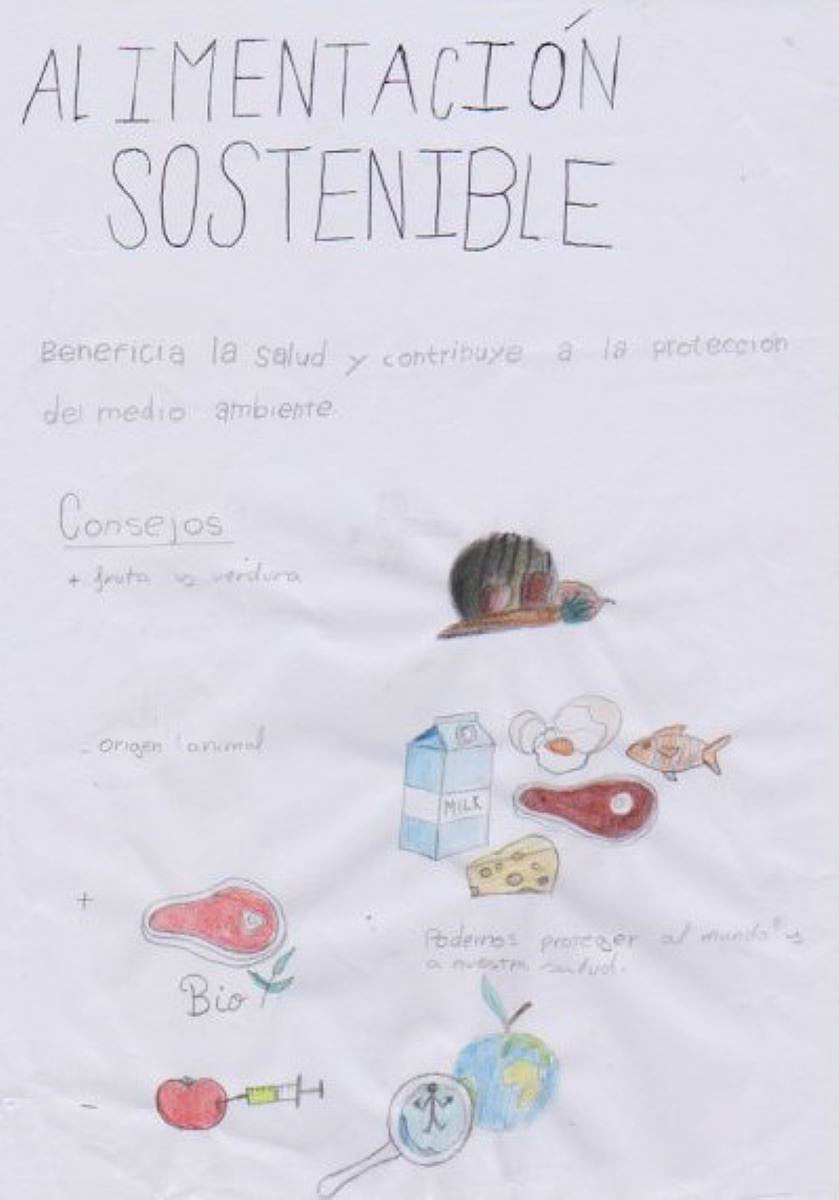 ALIMENTACIÓN
SOSTENIBLE
Beneficia la salud y contribuye a la protección
del medio ambiente
Consejos
+ fruta y verdura
- origen animal
MILK
+
Podemos proteger al mundo y
a nuestra salud.
Bio
-